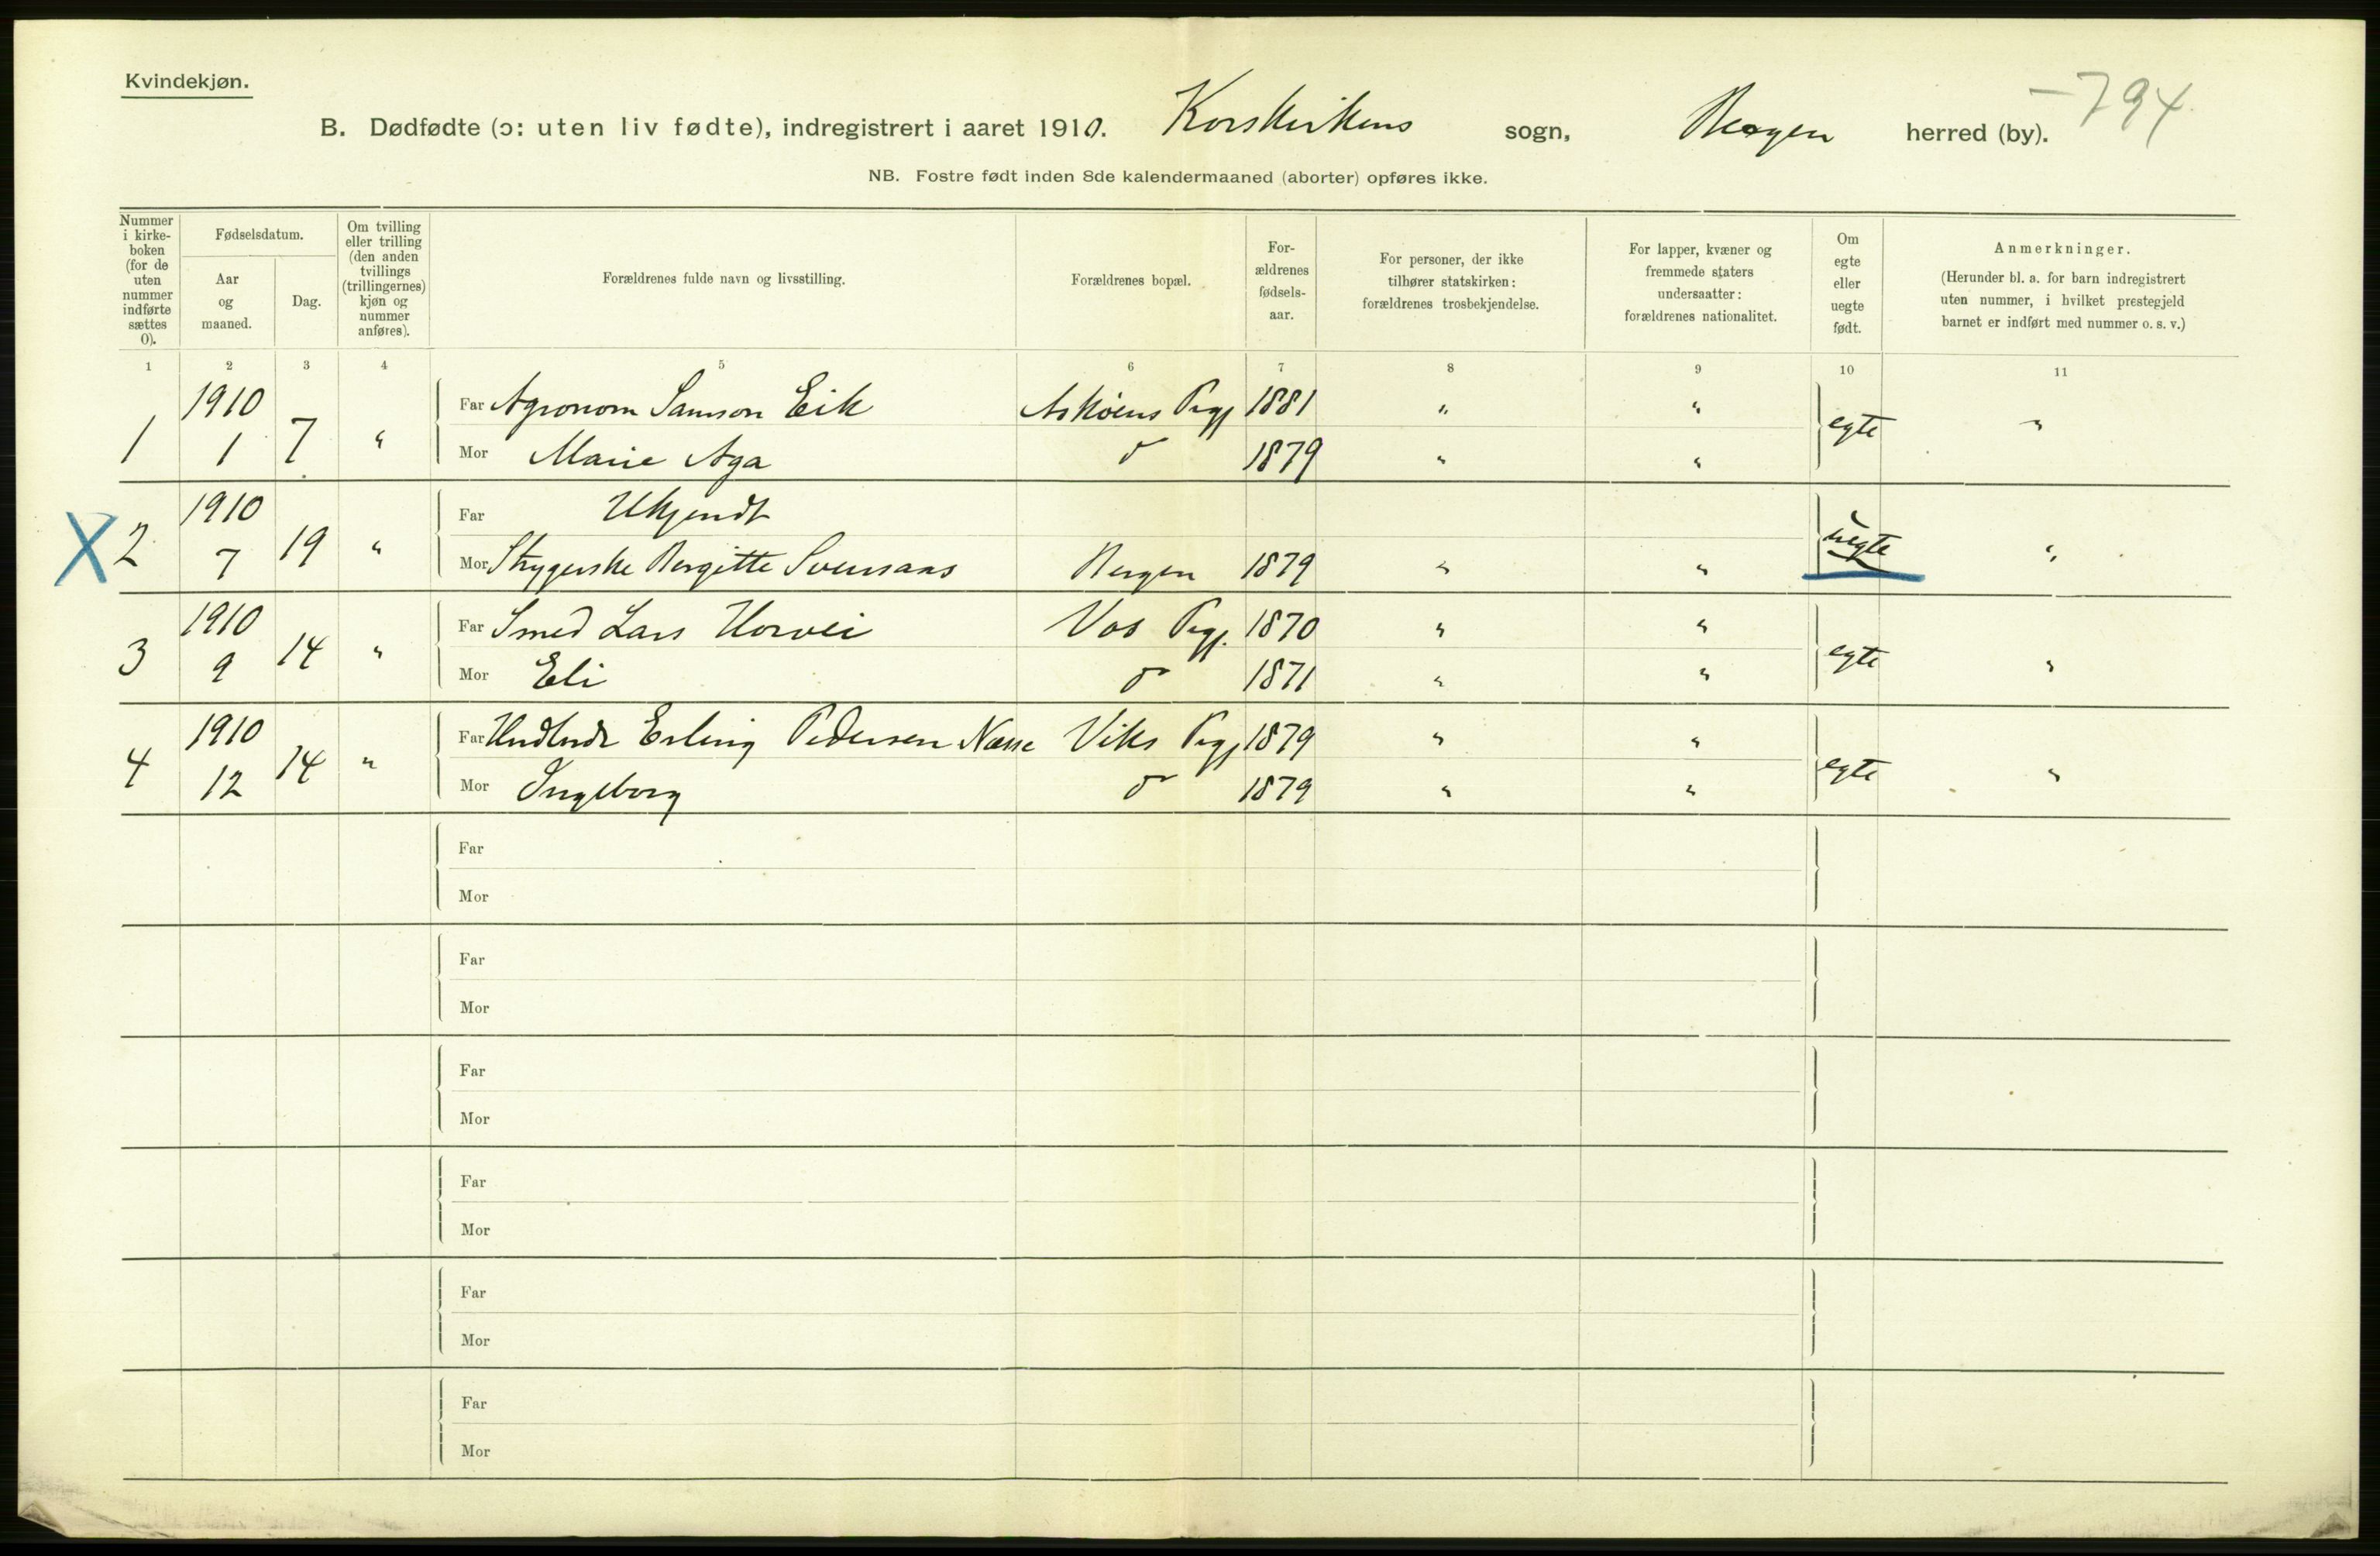 Kvindekjøn.
B. Dødfødte (ɔ: uten liv fødte), indregistrert i aaret 1910. Korskirkens sogn, Bergen herred (by). –794
NB. Fostre født inden 8de kalendermaaned (aborter) opføres ikke.
Nummer i kirke-boken (for de uten nummer indførte sættes 0).
Fødselsdatum.
Aar og maaned.
Dag.
Om tvilling eller trilling (den anden tvillings (trillingernes) kjøn og nummer anføres).
Forældrenes fulde navn og livsstilling.
Forældrenes bopæl.
For-ældrenes fødsels-aar.
For personer, der ikke tilhører statskirken: forældrenes trosbekjendelse.
For lapper, kvæner og fremmede staters undersaatter: forældrenes nationalitet.
Om egte eller uegte født.
Anmerkninger.
(Herunder bl. a. for barn indregistrert uten nummer, i hvilket prestegjeld barnet er indført med nummer o. s. v.)
1 2 3 4 5 6 7 8 9 10 11
1 1910 1 7 " Far Agronom Samson Eik Askøens Pgj 1881 " " egte "
Mor Marie Aga d 1879 " "
X 2 1910 7 19 " Far Ukjendt uegte "
Mor Strygerske Bergitte Svensaas Bergen 1879 " "
3 1910 9 14 " Far Smed Lars Horvei Vos Pgj. 1870 " " egte "
Mor Eli d 1871 " "
4 1910 12 14 " Far Erling Pedersen Næsse Viks Pgj 1879 " " egte "
Mor Ingeborg d 1879 " "
Far
Mor
Far
Mor
Far
Mor
Far
Mor
Far
Mor
Far
Mor